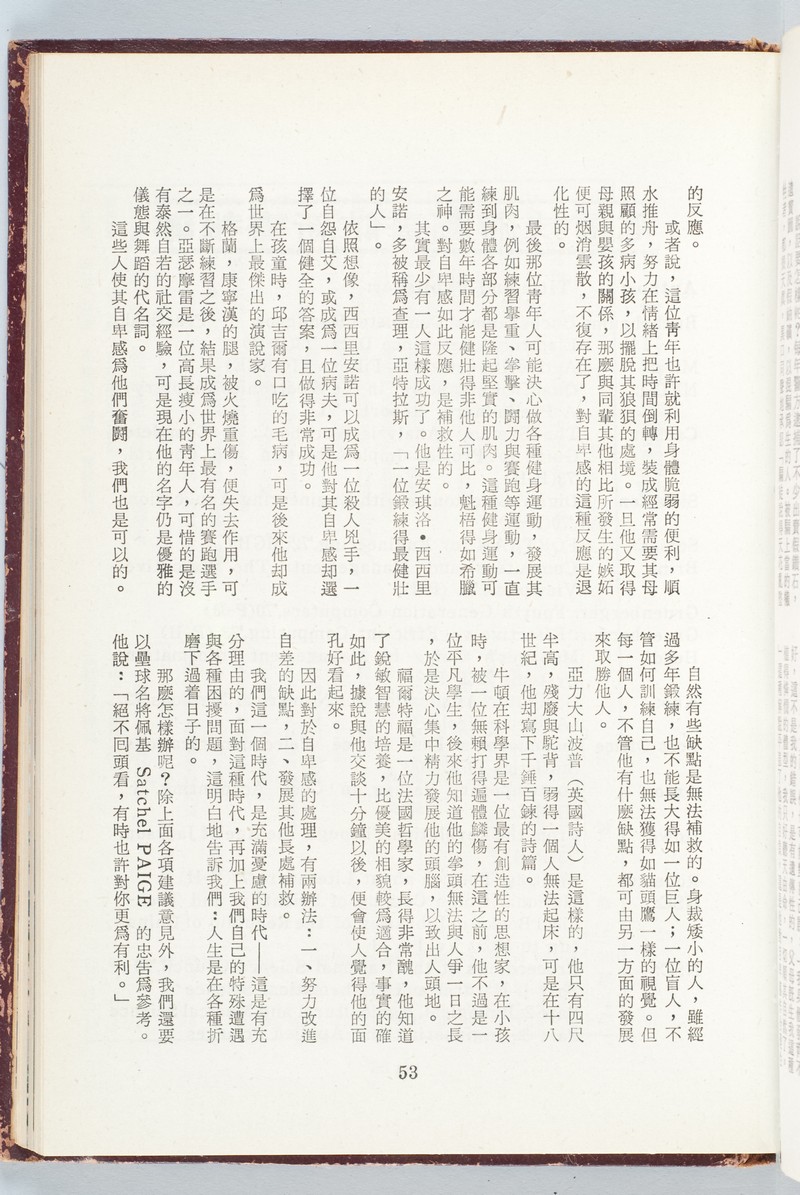 的反應。
或者說，這位青年也許就利用身體脆弱的便利，順
水推舟，努力在情緒上把時間倒轉，裝成經常需要其母
照顧的多病小孩，以擺脫其狼狽的處境。一旦他又取得
母親與嬰孩的關係，那麼與同輩其他相比所發生的嫉妬
便可烟消雲散，不復存在了，對自卑感的這種反應是退
化性的。
最後那位青年人可能決心做各種健身運動，發展其
肌肉，例如練習擧重、拳擊、鬪力與賽跑等運動，一直
練到身體各部分都是隆起堅實的肌肉。這種健身運動可
能需要數年時間才能健壯得非他人可比，魁梧得如希臘
之神。對自卑感如此反應，是補救性的。
其實最少有一人這樣成功了。他是安琪洛•西西里
安諾，多被稱爲查理，亞特拉斯，「一位鍛練得最健壯
的人」。
依照想像，西西里安諾可以成爲一位殺人兇手，一
位自怨自艾，或成爲一位病夫，可是他對其自卑感却選
擇了一個健全的答案，且做得非常成功。
在孩童時，邱吉爾有口吃的毛病，可是後來他却成
爲世界上最傑出的演說家。
格蘭，康寧漢的腿，被火燒重傷，便失去作用，可
是在不斷練習之後，結果成爲世界上最有名的賽跑選手
之一。亞瑟摩雷是一位高長瘦小的靑年人，可惜的是沒
有泰然自若的社交經驗，可是現在他的名字仍是優雅的
儀態與舞蹈的代名詞。
這些人使其自卑感爲他們奮鬪，我們也是可以的。
自然有些缺點是無法補救的。身裁矮小的人，雖經
過多年鍛練，也不能長大得如一位巨人；一位盲人，不
管如何訓練自己，也無法獲得如貓頭鷹一樣的視覺。但
每一個人，不管他有什麼缺點，都可由另一方面的發展
來取勝他人。
亞力大山波普（英國詩人）是這樣的，他只有四尺
半高，殘廢與駝背，弱得一個人無法起床，可是在十八
世紀，他却寫下千錘百鍊的詩篇。
牛頓在科學界是一位最有創造性的思想家，在小孩
時，被一位無賴打得遍體鱗傷，在這之前，他不過是一
位平凡學生，後來他知道他的拳頭無法與人爭一日之長
，於是決心集中精力發展他的頭腦，以致出人頭地。
福爾特福是一位法國哲學家，長得非常醜，他知道
了銳敏智慧的培養，比優美的相貌較爲適合，事實的確
如此，據說與他交談十分鐘以後，便會使人覺得他的面
孔好看起來。
因此對於自卑感的處理，有兩辦法：一、努力改進
自差的缺點，二、發展其他長處補救。
我們這一個時代，是充滿憂慮的時代——這是有充
分理由的，面對這種時代，再加上我們自己的特殊遭遇
與各種困擾問題，這明白地告訴我們：人生是在各種折
磨下過着日子的。
那麼怎樣辦呢？除上面各項建議意見外，我們還要
以壘球名將佩基 Satchel PAIGE 的忠告爲參考。
他說：「絕不囘頭看，有時也許對你更爲有利。」
53